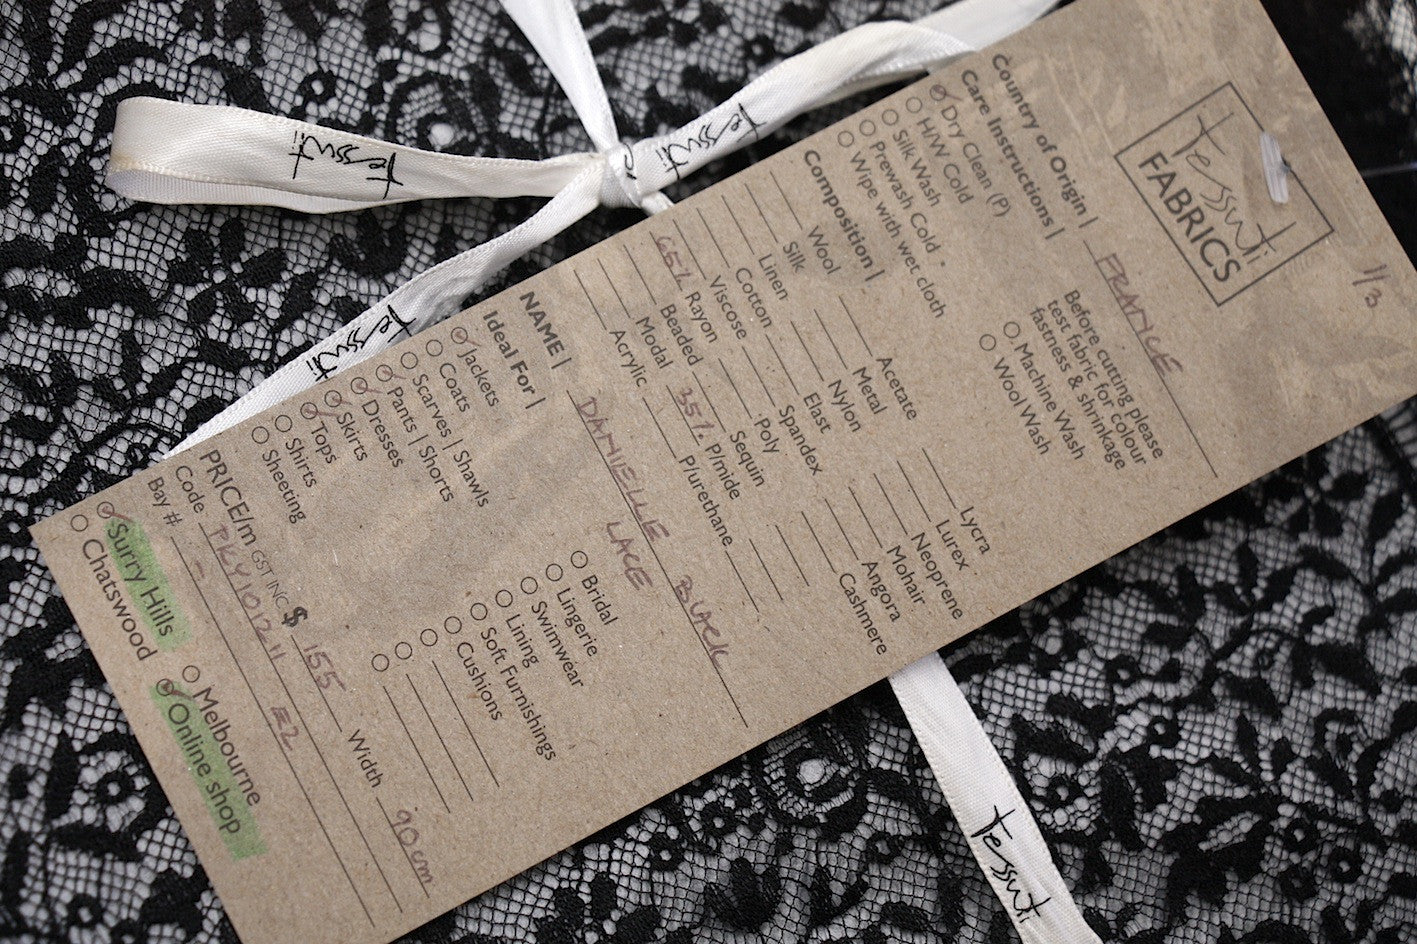 Tessuti
FABRICS
1/3
Country of Origin | FRANCE
Care Instructions |
Dry Clean (P)
H/W Cold
Silk Wash
Prewash Cold
Wipe with wet cloth
Before cutting please
test fabric for colour
fastness & shrinkage
Machine Wash
Wool Wash
Composition |
Wool
Silk
Linen
Cotton
Viscose
65% Rayon
Beaded
Modal
Acrylic
Acetate
Metal
Nylon
Elast
Spandex
Poly
Sequin
35% P/mide
P/urethane
Lycra
Lurex
Neoprene
Mohair
Angora
Cashmere
NAME | DANIELLE BLACK
LACE
Ideal For |
Jackets
Coats
Scarves | Shawls
Pants | Shorts
Dresses
Skirts
Tops
Shirts
Sheeting
Bridal
Lingerie
Swimwear
Lining
Soft Furnishings
Cushions
PRICE/m GST INC $ 155 Width 90cm
Code PKY1012 11 E2
Bay # -
Surry Hills
Chatswood
Melbourne
Online shop
Tessuti
Tessuti
Tessuti
Tessuti